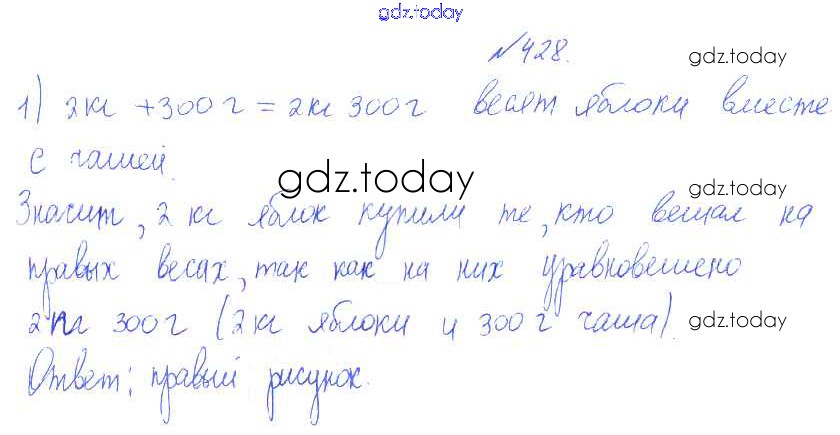 gdz.today
№428. gdz.today
1) 2кг + 300 г = 2кг 300г весят яблоки вместе
с чашей.
gdz.today
Значит, 2 кг яблок купили те, кто вешал на
gdz.today
правых весах, так как на них уравновешено
2кг 300г (2кг яблоки и 300г чаша). gdz.today
Ответ: правый рисунок.